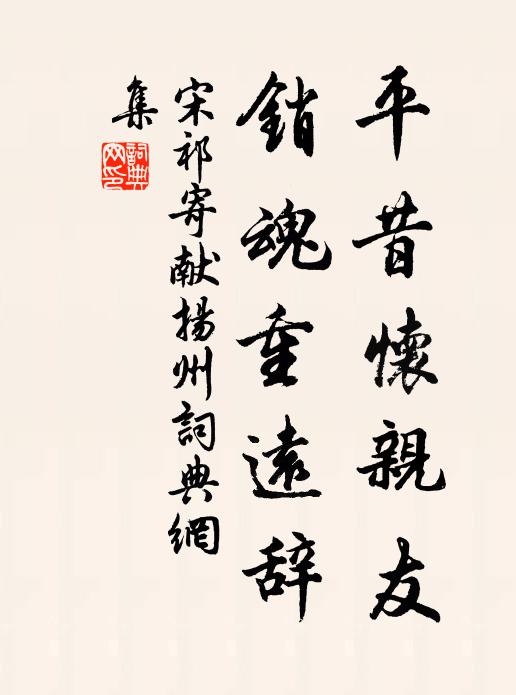 平昔懷親友
銷魂重遠辞
宋祁寄献揚州詞典網
集
詞典
网印